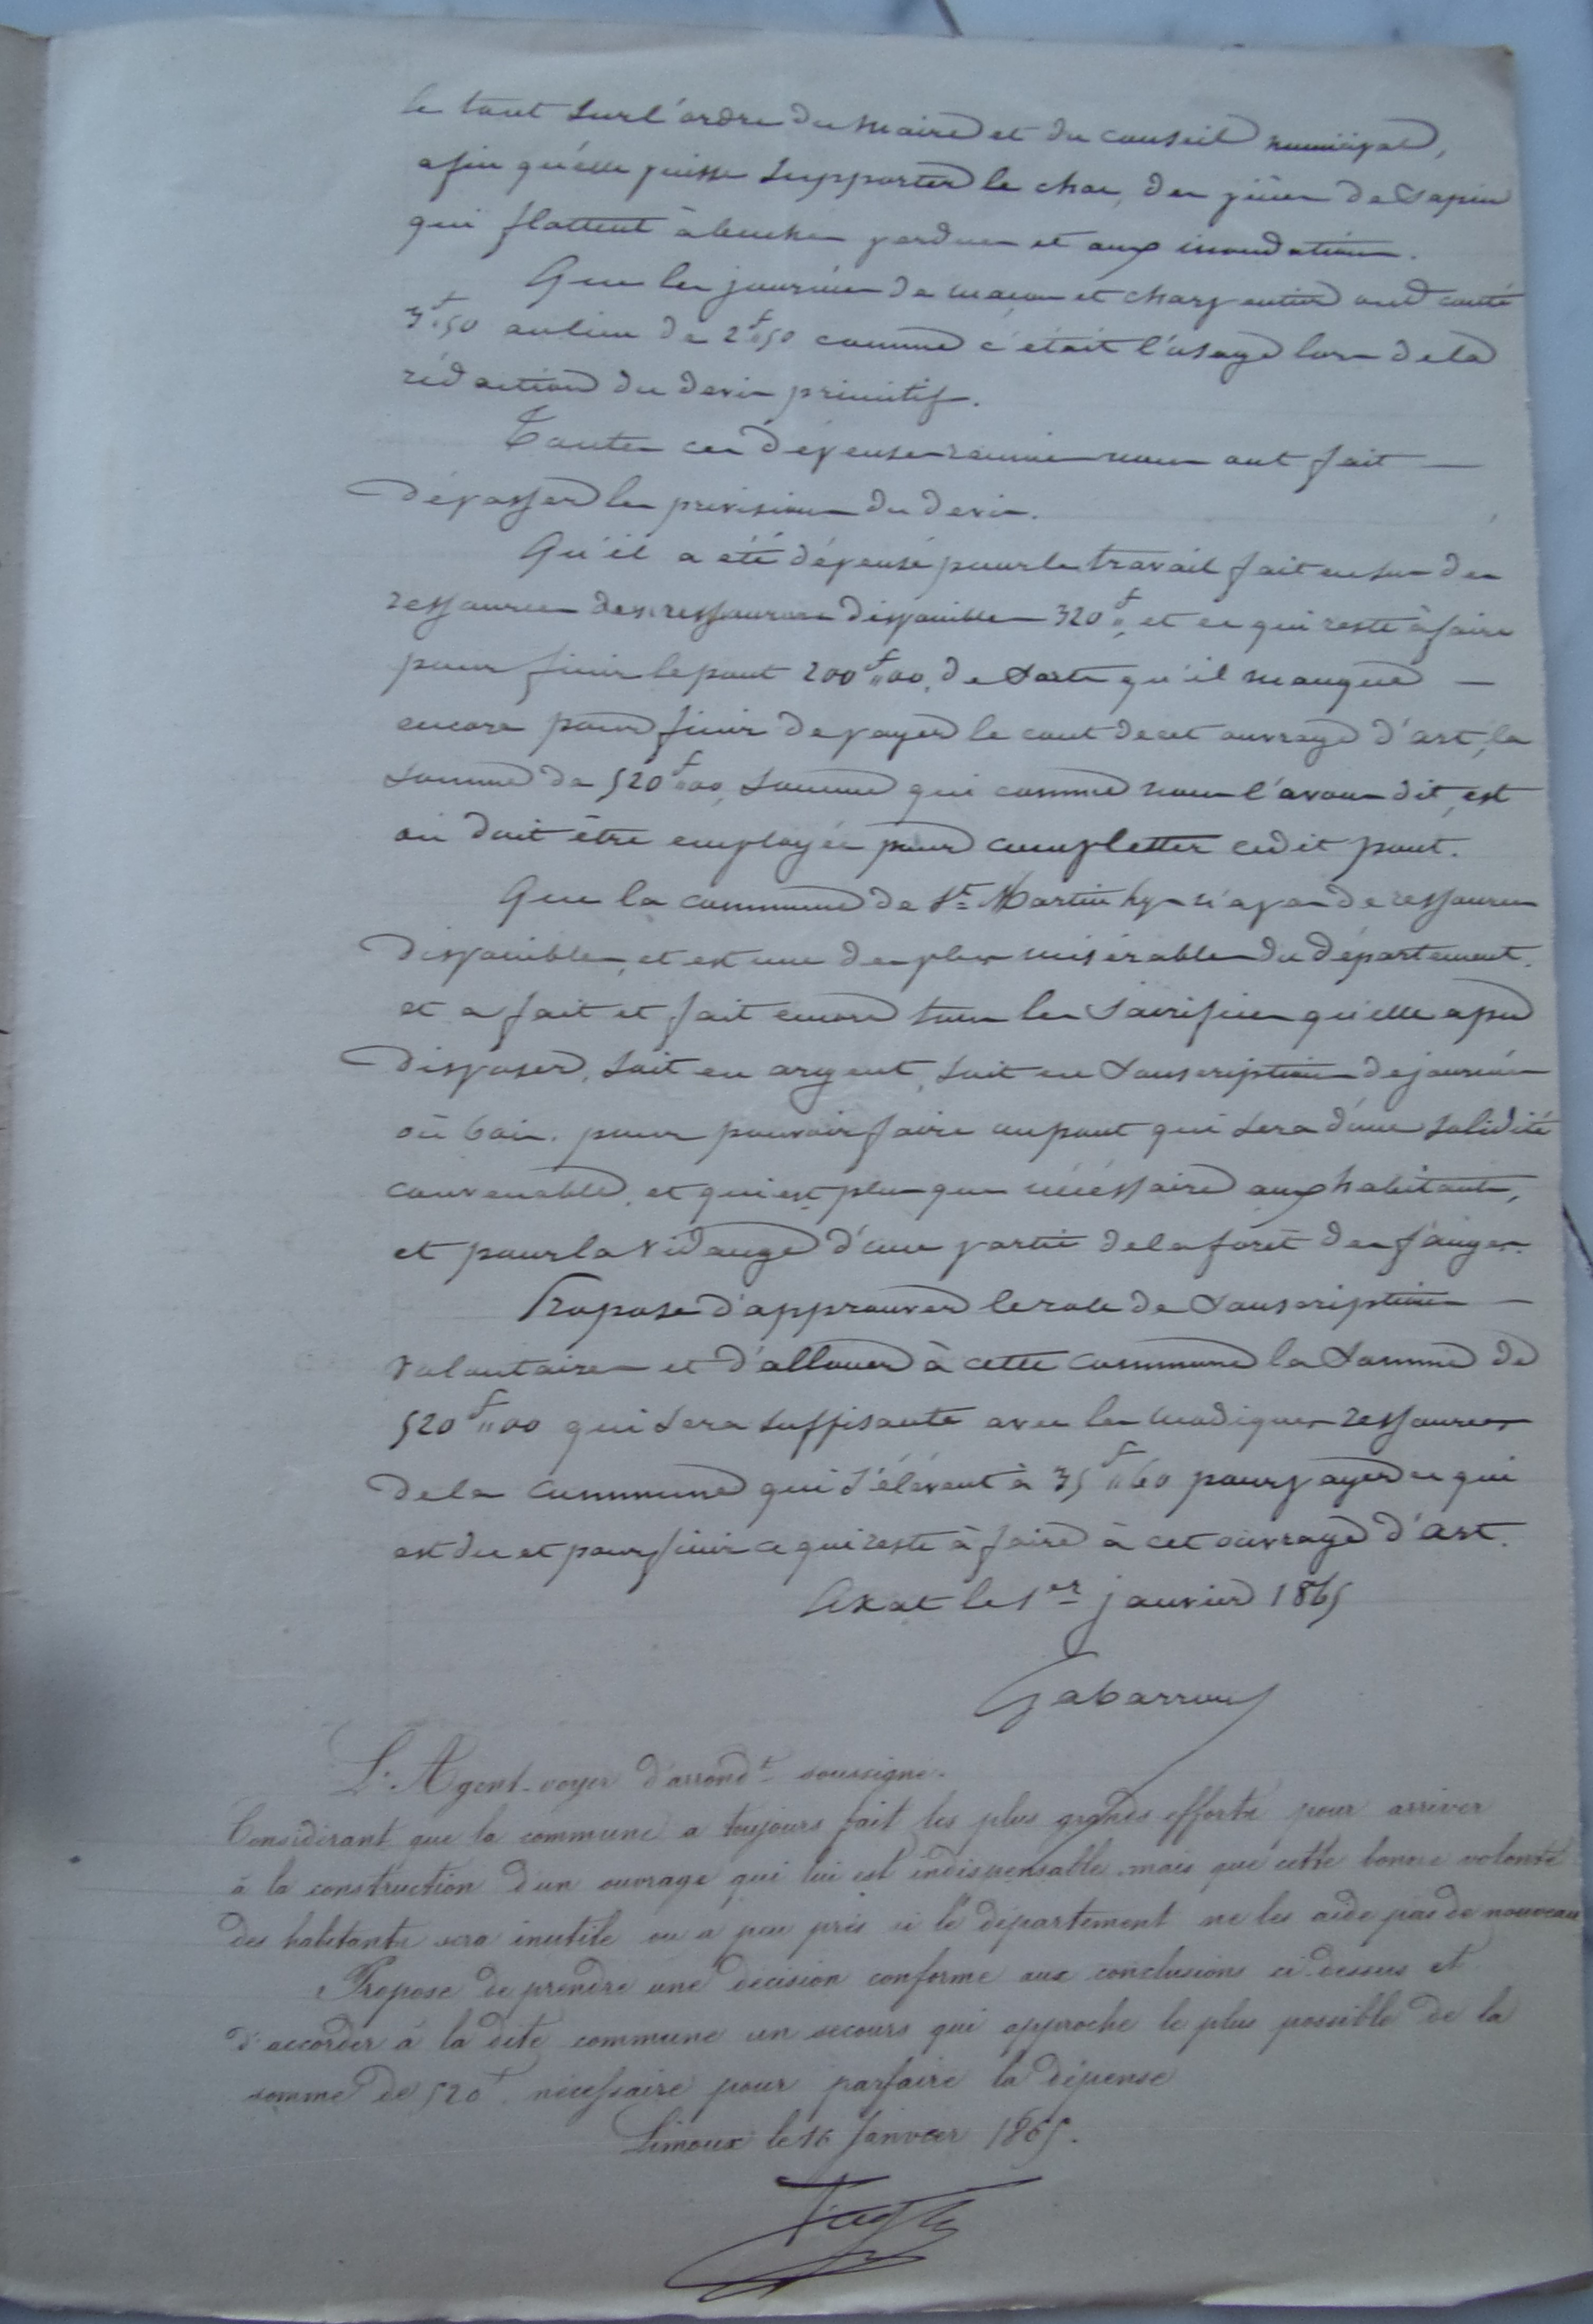 le tout sur l'ordre du maire et du conseil municipal,
afin qu'elle puisse supporter le choc, des pièces de sapin
qui flottent à buches perdues et aux inondations.
Que les journées de maçon et charpentier ont couté
3f,50 au lieu de 2f,50 comme c'était l'usage lors de la
rédaction du devis primitif.
Toutes ces dépenses réunies nous ont fait —
dépasser les prévisions du devis.
Qu'il a été dépensé pour le travail fait en sus des
ressources des ressources disponibles 320f, et ce qui reste à faire
pour finir le pont 200f,00, de sorte qu'il manque —
encore pour finir de payer le cout de cet ouvrage d'art, la
somme de 520f,00, somme qui comme nous l'avons dit, est
où doit être employée pour completter cedit pont.
Que la commune de St Martin lys n'a pas de ressources
disponibles, et est une des plus misérables du département.
et a fait et fait encore tous les sacrifices qu'elle a pu
disposer, soit en argent, soit en souscriptions de journées
où bois. pour pouvoir faire un pont qui sera d'une solidité
convenable, et qui est plus que nécéssaire aux habitants,
et pour la vidange d'une partie de la forêt des fanges.
Propose d'approuver le role de souscriptions —
volontaires et d'allouer à cette commune la somme de
520f,00 qui sera suffisante avec les modiques ressources
de la commune qui s'élèvent à 35f,60 pour payer ce qui
est du et pour finir ce qui reste à faire à cet ouvrage d'art.
Axat le 1er janvier 1865
Gabarrou
L'Agent-voyer d'arrondt soussigné.
Considérant que la commune a toujours fait les plus grands efforts pour arriver
à la construction d'un ouvrage qui lui est indispensable, mais que cette bonne volonté
des habitants sera inutile ou a peu près si le département ne les aide pas de nouveau
Propose de prendre une décision conforme aux conclusions ci-dessus et
d'accorder à la dite commune un secours qui approche le plus possible de la
somme de 520f. nécessaire pour parfaire la dépense
Limoux le 16 Janvier 1865.